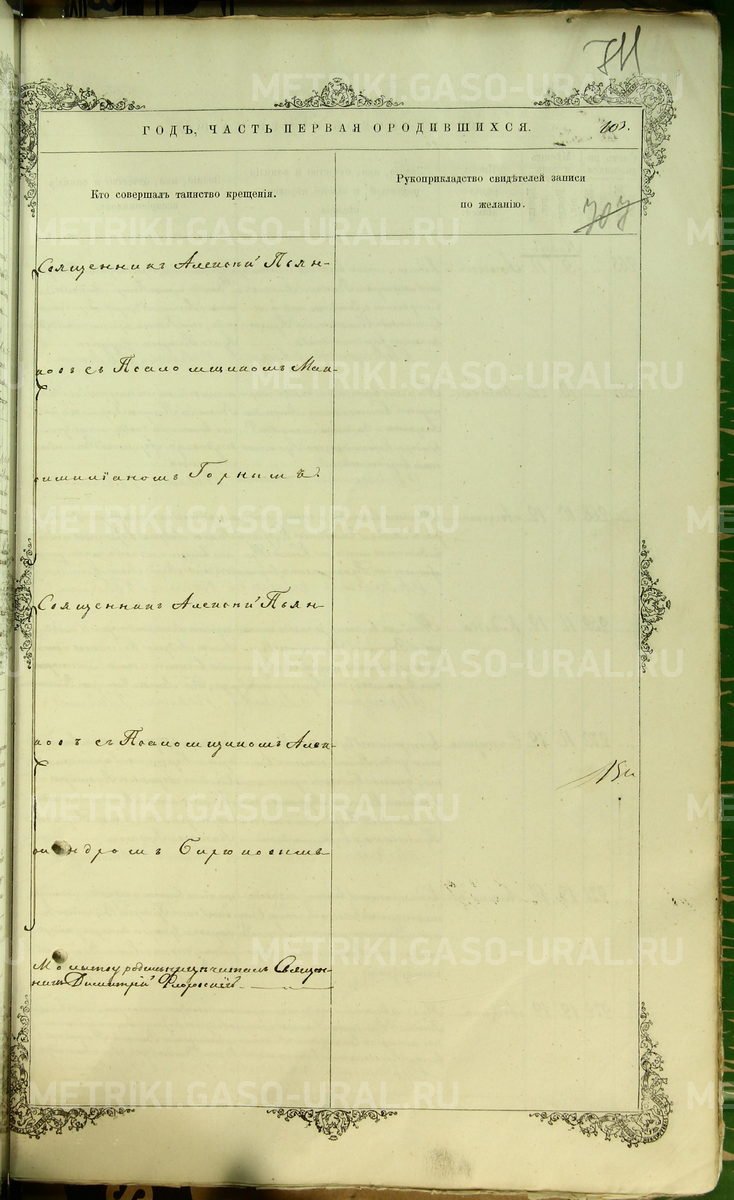 711
ГОДЪ, ЧАСТЬ ПЕРВАЯ О РОДИВШИХСЯ.
103.
Кто совершалъ таинство крещенія.
Рукоприкладство свидѣтелей записи
по желанію.
707
Священникъ Алексѣй Пьян-
ковъ съ Псаломщикомъ Мак-
симиліаномъ Горнымъ.
Священникъ Алексѣй Пьян-
ковъ съ Псаломщикомъ Алек-
сандромъ Бирюковымъ
Молитву родильницѣ читалъ Священ-
никъ Димитрій
METRIKI.GASO-URAL.RU